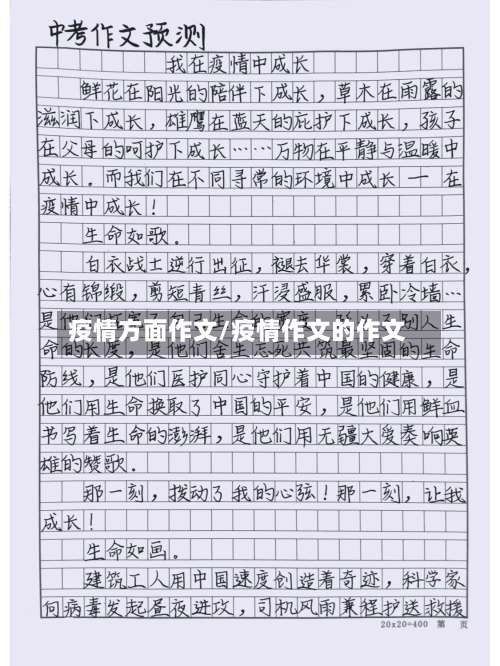 中考作文预测
我在疫情中成长
鲜花在阳光的陪伴下成长，草木在雨露的
滋润下成长，雄鹰在蓝天的庇护下成长，孩子
在父母的呵护下成长……万物在平静与温暖中
成长。而我们在不同寻常的环境中成长一在
疫情中成长！
生命如歌。
白衣战士逆行出征，褪去华裳，穿着白衣，
心有锦缎，剪短青丝，汗浸盛服，累卧冷墙…
疫情方面作文/疫情作文的作文
命的长度，是他们
生命
防线，是他们医护同心守护着中国的健康，是
他们用生命换取了中国的平安，是他们用鲜血
书写着生命的澎湃，是他们用无疆大爱奏响英
雄的赞歌.
那一刻，拨动了我的心弦！那一刻，让我
成长！
生命如画。
建筑工人用中国速度创造着奇迹，科学家
向病毒发起昼夜进攻，司机风雨兼程护送救援
20x20=400 第 页